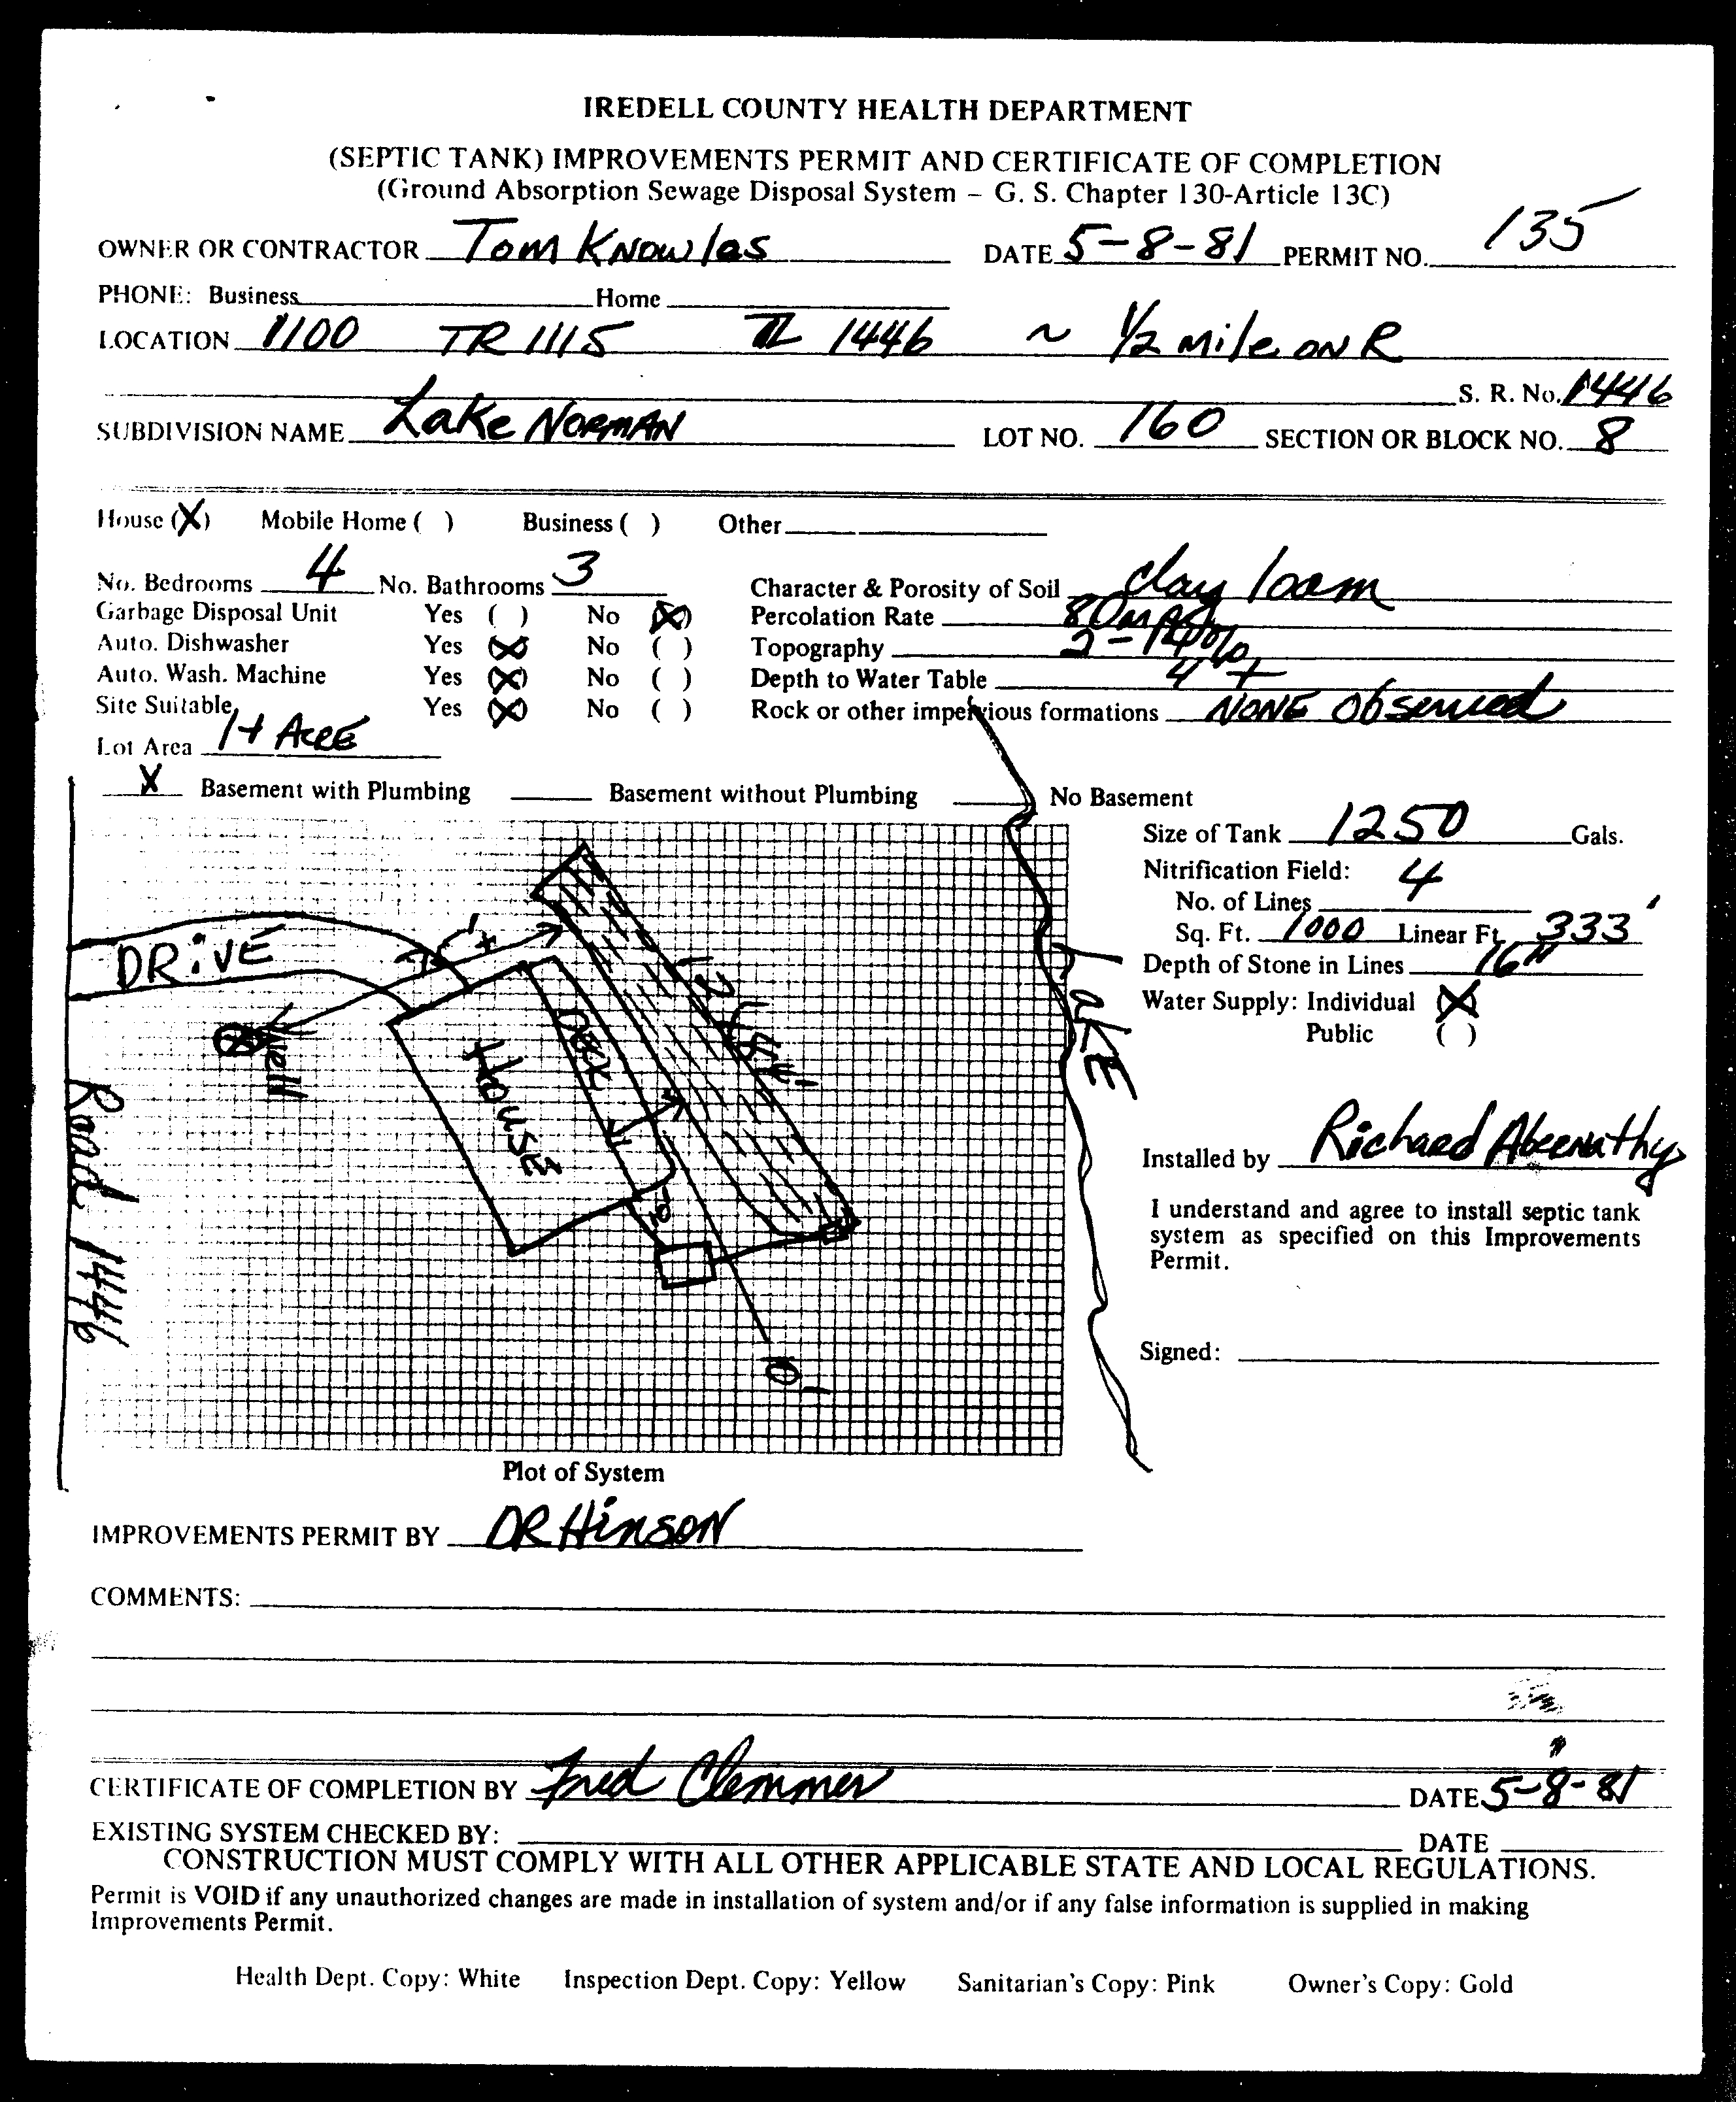 IREDELL COUNTY HEALTH DEPARTMENT
(SEPTIC TANK) IMPROVEMENTS PERMIT AND CERTIFICATE OF COMPLETION
(Ground Absorption Sewage Disposal System – G. S. Chapter 130-Article 13C)
OWNER OR CONTRACTOR Tom Knowles DATE 5-8-81 PERMIT NO. 135
PHONE: Business Home
LOCATION 1100 TR 1115 TL 1446 ~ 1/2 mile on R
S. R. No. 1446
SUBDIVISION NAME Lake Norman LOT NO. 160 SECTION OR BLOCK NO. 8
House (X) Mobile Home ( ) Business ( ) Other
No. Bedrooms 4 No. Bathrooms 3 Character & Porosity of Soil clay loam
Garbage Disposal Unit Yes ( ) No (X) Percolation Rate 80
Auto. Dishwasher Yes (X) No ( ) Topography 2-14%
Auto. Wash. Machine Yes (X) No ( ) Depth to Water Table 4+
Site Suitable Yes (X) No ( ) Rock or other impervious formations NONE Observed
Lot Area 1+ Acre
X Basement with Plumbing Basement without Plumbing No Basement
Size of Tank 1250 Gals.
Nitrification Field: 4
No. of Lines
Sq. Ft. 1000 Linear Ft. 333'
Depth of Stone in Lines 16"
Water Supply: Individual (X)
Public ( )
DRiVE
Well
House
Deck
LAKE
Road 1446
10'
Installed by Richard Abernathy
I understand and agree to install septic tank
system as specified on this Improvements
Permit.
Signed:
Plot of System
IMPROVEMENTS PERMIT BY DR Hinson
COMMENTS:
CERTIFICATE OF COMPLETION BY Fred Clemmer DATE 5-8-81
EXISTING SYSTEM CHECKED BY: DATE
CONSTRUCTION MUST COMPLY WITH ALL OTHER APPLICABLE STATE AND LOCAL REGULATIONS.
Permit is VOID if any unauthorized changes are made in installation of system and/or if any false information is supplied in making
Improvements Permit.
Health Dept. Copy: White Inspection Dept. Copy: Yellow Sanitarian's Copy: Pink Owner's Copy: Gold